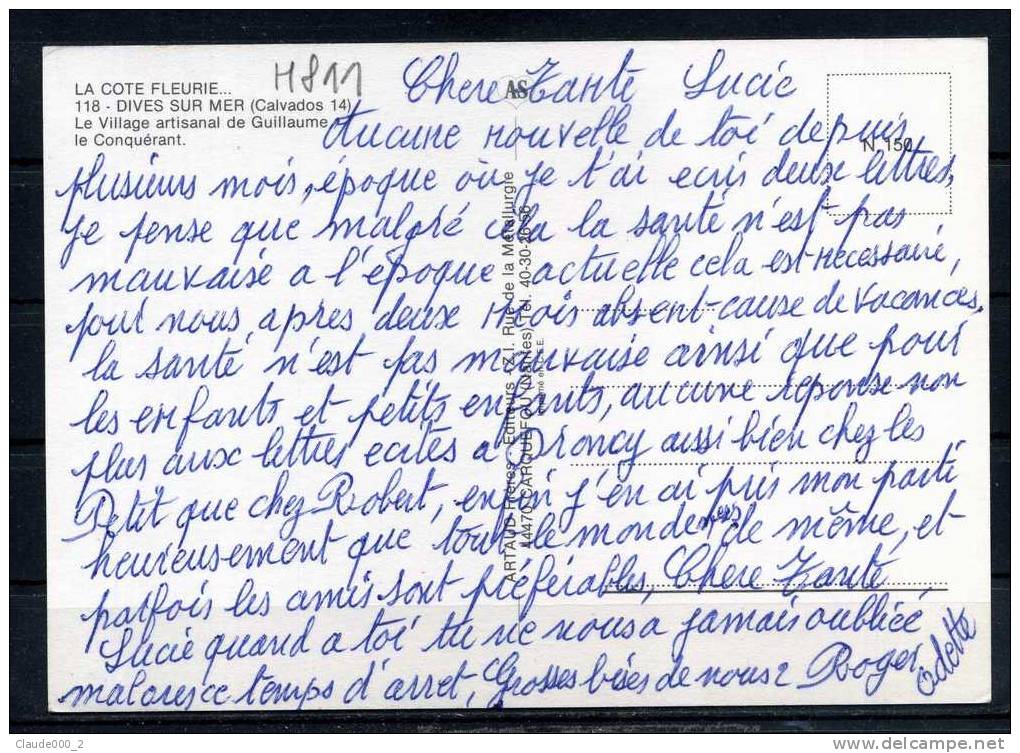 LA COTE FLEURIE...
118 - DIVES SUR MER (Calvados 14)
Le Village artisanal de Guillaume
le Conquérant.
H811
AS
N. 150
Chere Tante Lucie
Aucune nouvelle de toi depuis
plusieurs mois, époque où je t'ai ecris deux lettres,
je pense que malgré cela la santé n'est pas
mauvaise a l'époque actuelle cela est necessaire,
pour nous apres deux mois absent cause de vacances.
la santé n'est pas mauvaise ainsi que pour
les enfants et petits enfants, aucune reponse non
plus aux lettres ecites a Drancy aussi bien chez les
Petit que chez Robert, enfin j'en ai pris mon parti
heureusement que tout le monde n'est de même, et
parfois les amis sont préférables, Chere Tante
Lucie quand a toi tu ne nous a jamais oubliée
malgres ce temps d'arret, Grosses bises de nous 2 Roger
Odette
ARTAUD Frères - Editeurs - Z.I. Rue de la Métallurgie
44470 CARQUEFOU (Nantes) Tél. 40-30-26-56
Claude000_2
www.delcampe.net